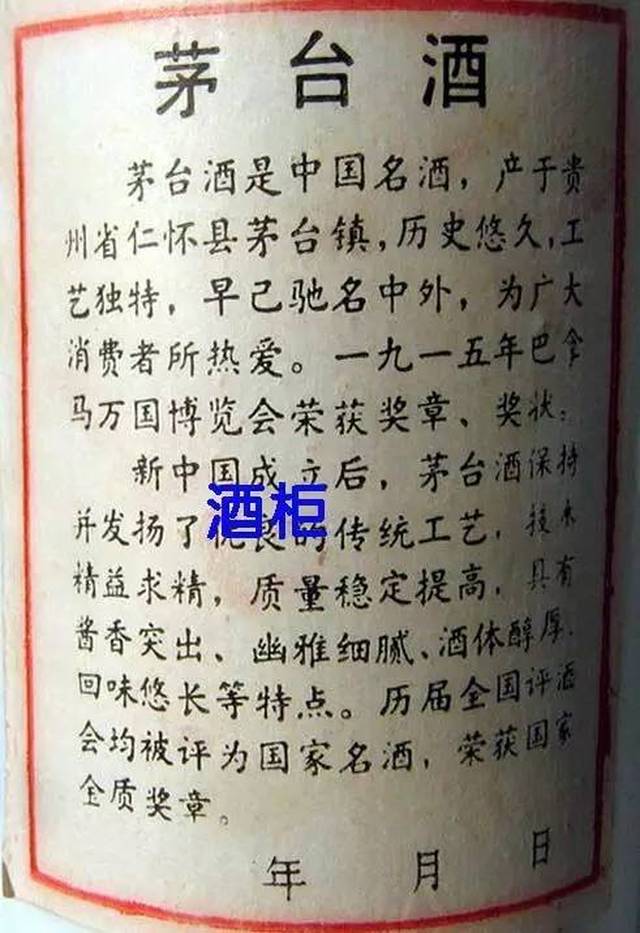 茅台酒
茅台酒是中国名酒，产于贵
州省仁怀县茅台镇，历史悠久，工
艺独特，早已驰名中外，为广大
消费者所热爱。一九一五年巴拿
马万国博览会荣获奖章、奖状；
新中国成立后，茅台酒保持
酒柜
并发扬了优良的传统工艺，技术
精益求精，质量稳定提高，具有
酱香突出、幽雅细腻、酒体醇厚、
回味悠长等特点。历届全国评酒
会均被评为国家名酒，荣获国家
金质奖章。
年 月 日